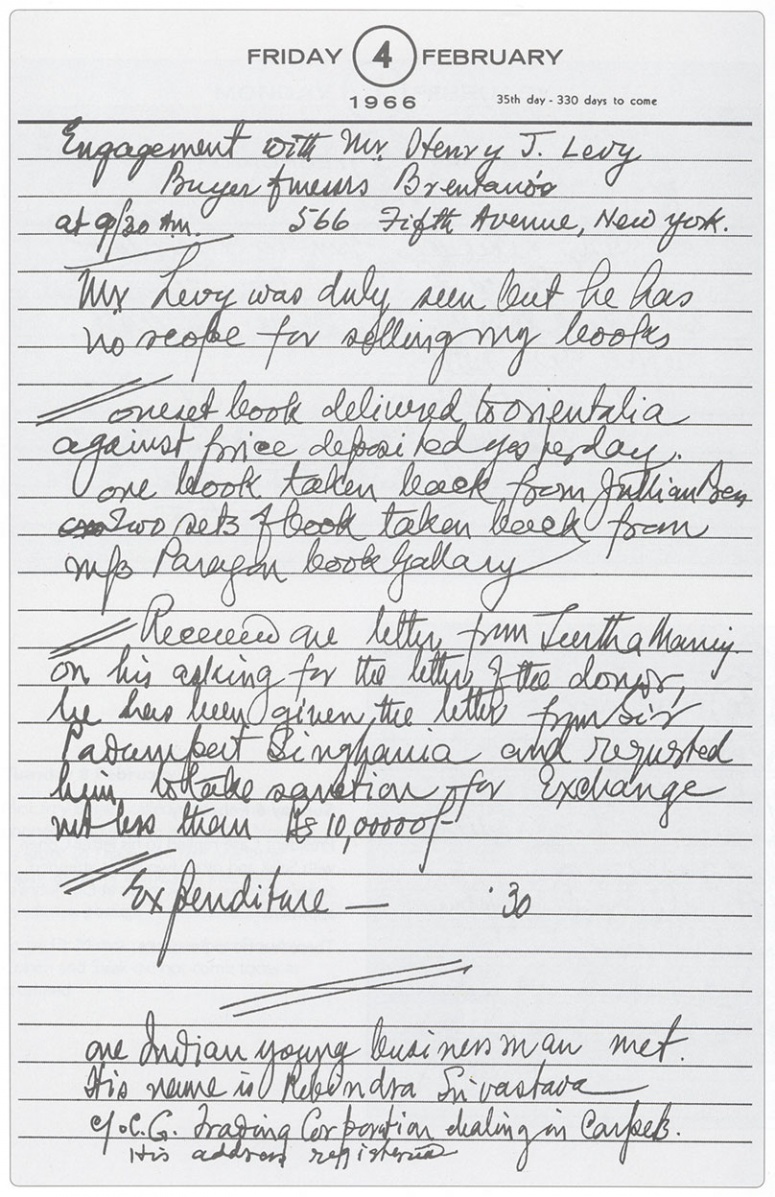 FRIDAY 4 FEBRUARY
1966 35th day - 330 days to come
Engagement with Mr. Henry J. Levy
Buyer Brentano's
at 9/30 A.M. 566 Fifth Avenue, New York.
Mr. Levy was duly seen but he has
no scope for selling my books
one set book delivered to orientalia
against price deposited yesterday.
one book taken back from Jullian
Two sets of book taken back from
m/s Paragon book Gallary
Received one letter from
on his asking for the letter of the donor,
he has been given the letter from Sir
Padampat Singhania and requsted
him to take sanction for Exchange
not less than Rs 10,00000/-
Expenditure — .30
one Indian young businessman met.
His name is Rabindra Srivastava
c/o. C.G. Trading Corporation dealing in Carpets.
His address registered